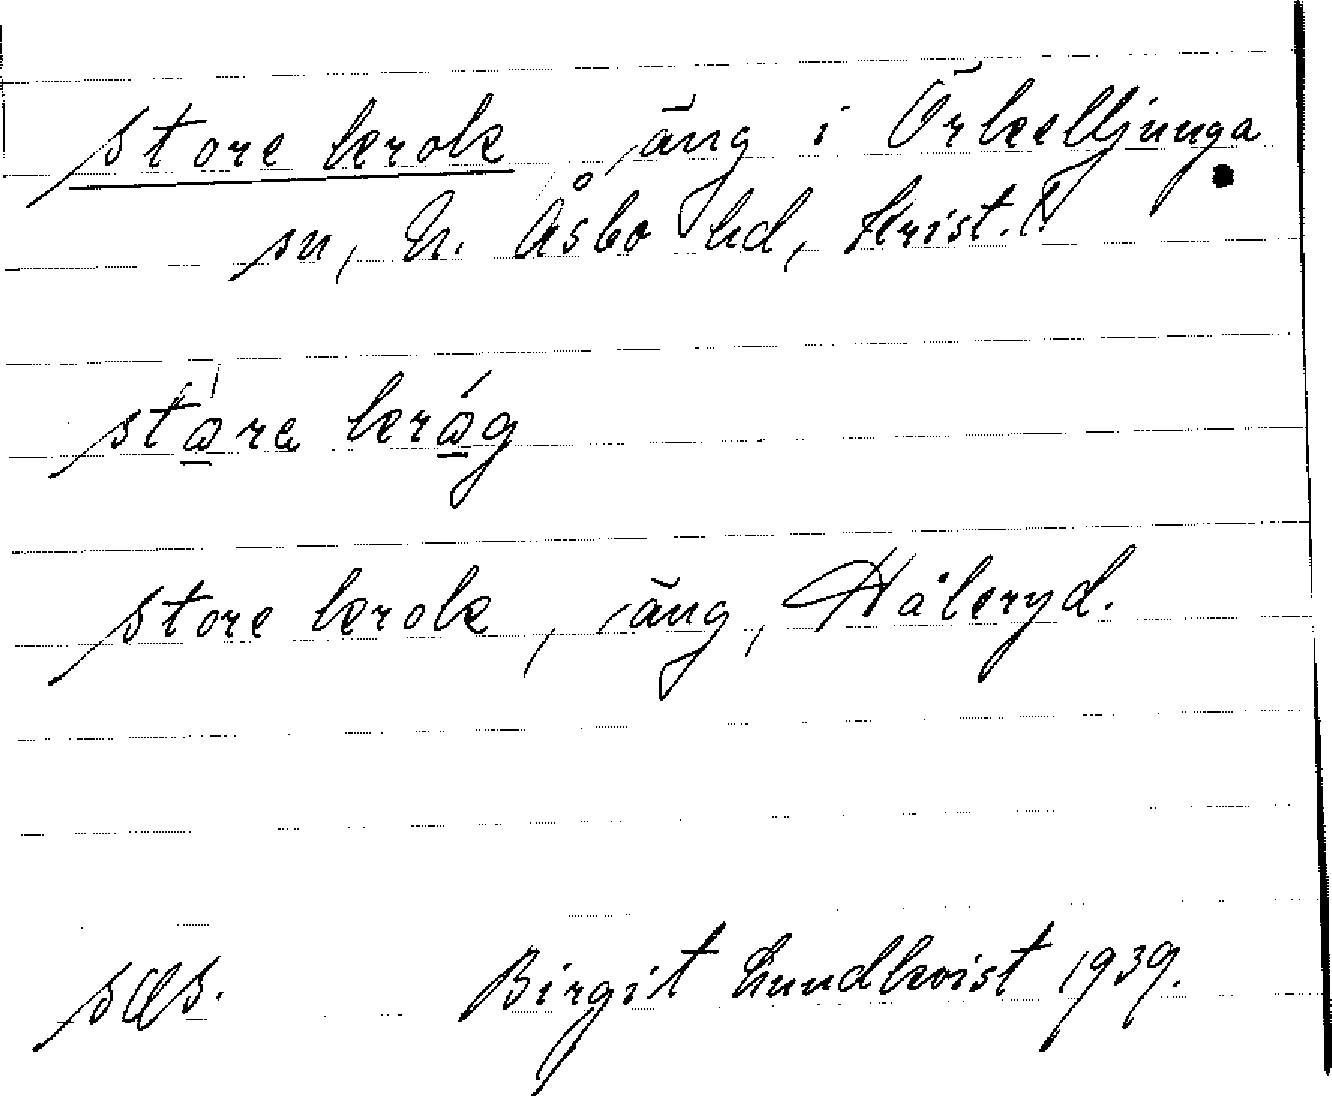 store krok äng i Örkelljunga
sn, N. Åsbo hd, Krist. l.
store kråg
store krok, äng, Håleryd.
Birgit Lundkvist 1939.